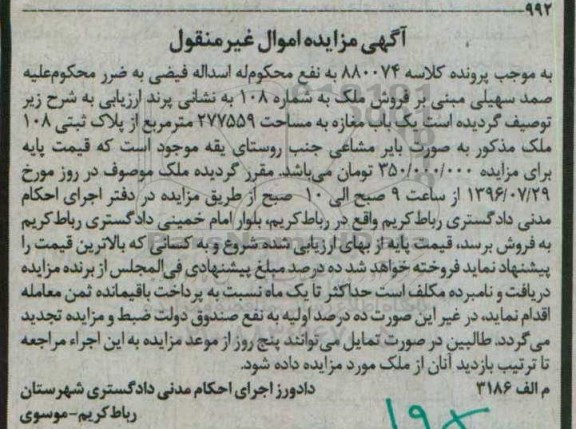 ۹۹۲
آگهی مزایده اموال غیر منقول
به موجب پرونده کلاسه ۸۸۰۰۷۴ به نفع محکوم‌له اسداله فیضی به ضرر محکوم‌علیه
صمد سهیلی مبنی بر فروش ملک به شماره ۱۰۸ به نشانی پرند ارزیابی به شرح زیر
توصیف گردیده است یک باب مغازه به مساحت ۲۷۷۵۵۹ مترمربع از پلاک ثبتی ۱۰۸
ملک مذکور به صورت بایر مشاعی جنب روستای یقه موجود است که قیمت پایه
برای مزایده ۳۵۰/۰۰۰/۰۰۰ تومان می‌باشد. مقرر گردیده ملک موصوف در روز مورخ
۱۳۹۶/۰۷/۲۹ از ساعت ۹ صبح الی ۱۰ صبح از طریق مزایده در دفتر اجرای احکام
مدنی دادگستری رباط‌کریم واقع در رباط‌کریم، بلوار امام خمینی دادگستری رباط‌کریم
به فروش برسد، قیمت پایه از بهای ارزیابی شده شروع و به کسانی که بالاترین قیمت را
پیشنهاد نماید فروخته خواهد شد ده درصد مبلغ پیشنهادی فی‌المجلس از برنده مزایده
دریافت و نامبرده مکلف است حداکثر تا یک ماه نسبت به پرداخت باقیمانده ثمن معامله
اقدام نماید، در غیر این صورت ده درصد اولیه به نفع صندوق دولت ضبط و مزایده تجدید
می‌گردد. طالبین در صورت تمایل می‌توانند پنج روز از موعد مزایده به این اجراء مراجعه
تا ترتیب بازدید آنان از ملک مورد مزایده داده شود.
م الف ۳۱۸۶ دادورز اجرای احکام مدنی دادگستری شهرستان
رباط کریم-موسوی